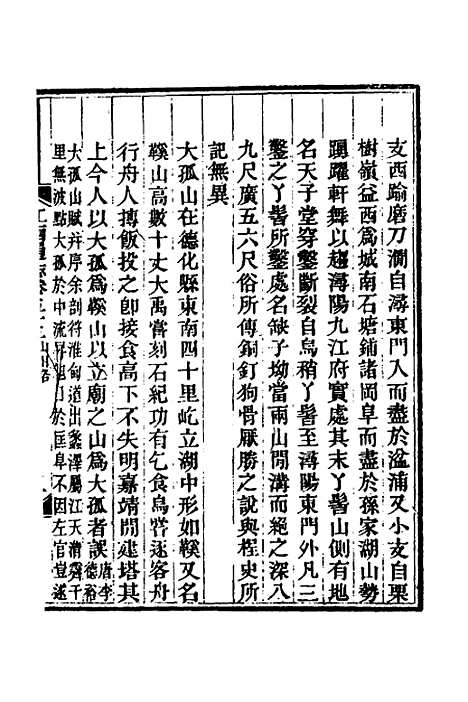 支西踰磨刀澗自潯東門入而盡於湓浦又小支自栗
樹嶺益西爲城南石塘鋪諸岡阜而盡於孫家湖山勢
踴躍軒舞以趨潯陽九江府實處其末丫髻山側有地
名天子堂穿鑿斷裂自烏稍丫髻至潯陽東門外凡三
鑿之丫髻所鑿處名缺子坳當兩山閒溝而絕之深八
九尺廣五六尺俗所傳銅釘狗骨厭勝之說與桯史所
記無異
大孤山在德化縣東南四十里屹立湖中形如鞵又名
鞵山高數十丈大禹嘗刻石紀功有乞食烏嘗逐客舟
行舟人摶飯投之卽接食高下不失明嘉靖閒建塔其
上今人以大孤爲鞵山以立廟之山爲大孤者誤唐李德裕
大孤山賦幷序余剖符淮甸道出蠡澤屬江天淸霽千
里無波點大孤於中流昇旭日於匡阜不因左官豈遂